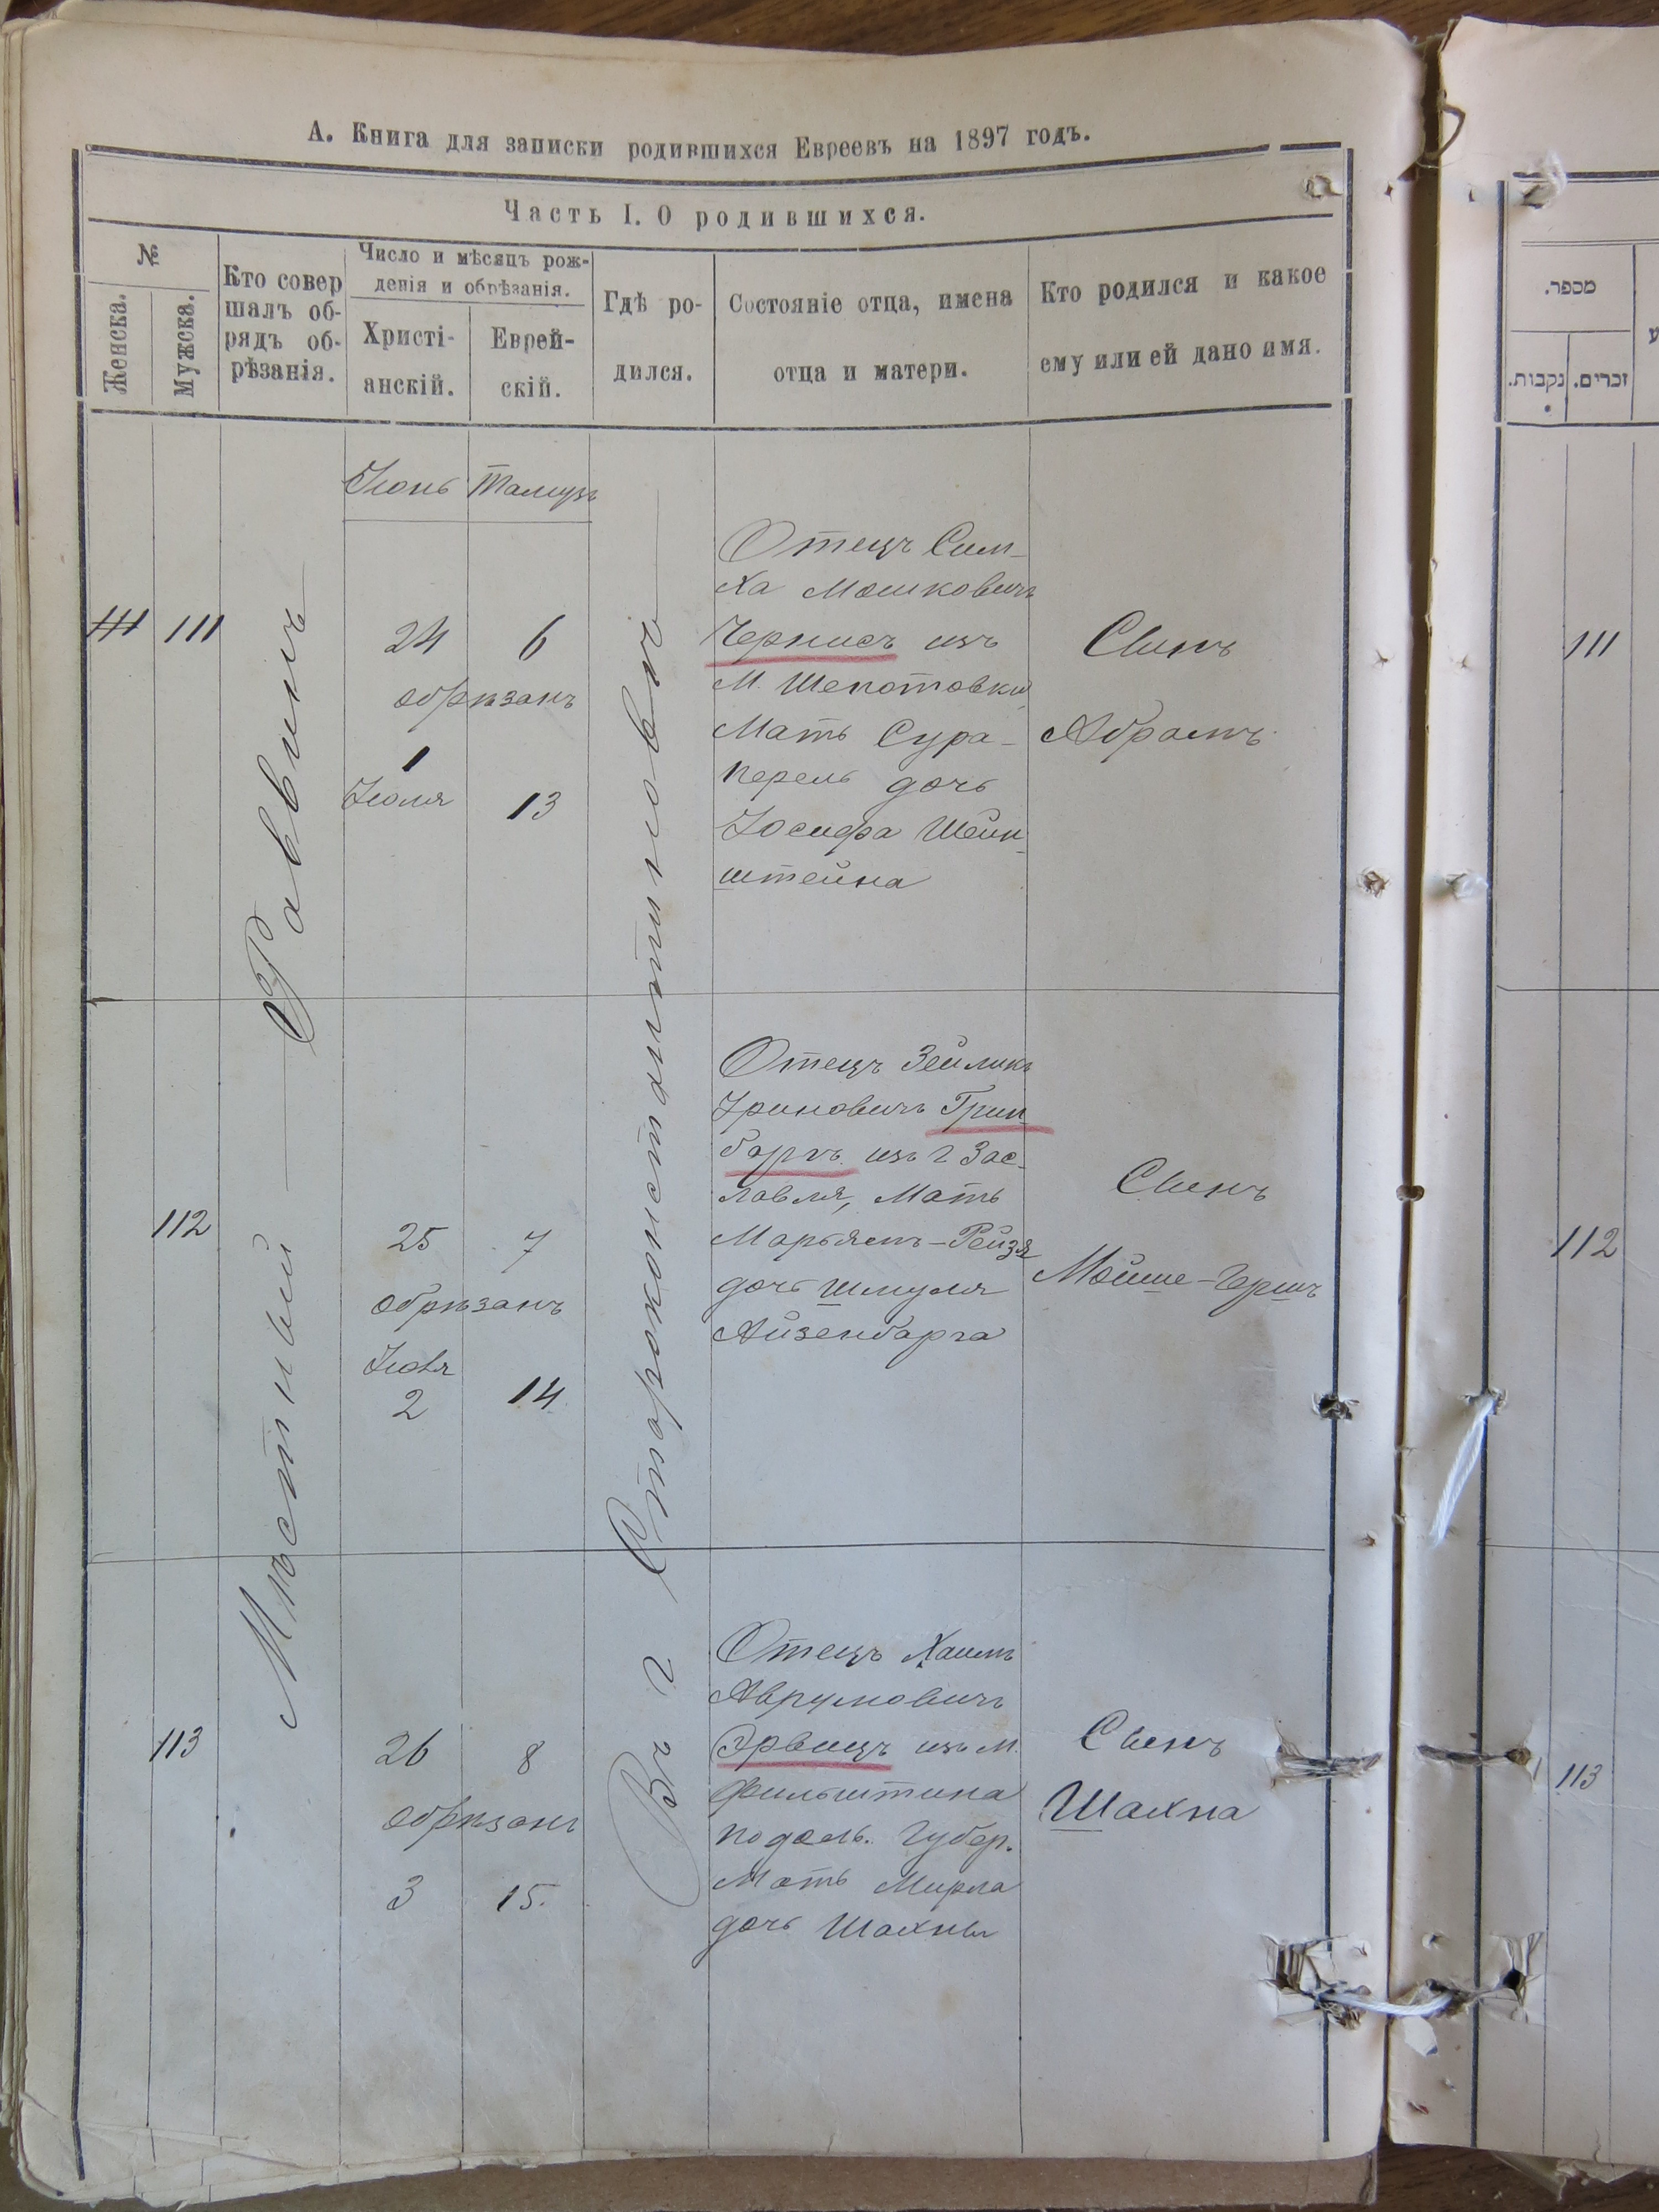 А. Книга для записки родившихся Евреевъ на 1897 годъ.
Часть I. О родившихся.
№
Женска.
Мужска.
Кто совер
шалъ об-
рядъ об-
рѣзанія.
Число и мѣсяцъ рож-
денія и обрѣзанія.
Христі-
анскій.
Еврей-
скій.
Гдѣ ро-
дился.
Состояніе отца, имена
отца и матери.
Кто родился и какое
ему или ей дано имя.
Мѣстный Раввинъ
Въ г Староконстантиновѣ
Іюнь Тамузъ
111 111
24 6
обрѣзанъ
1
Іюля 13
Отецъ Сим-
ха Мошковичъ
Чернисъ изъ
М. Шепотовки,
Мать Сура-
Перель дочь
Іосифа Шейн-
штейна
Сынъ
Абрамъ
112
25 7
обрѣзанъ
Іюля
2 14
Отецъ Зейликъ
Грин-
баргъ изъ г Зас-
лавля, Мать
Марьямъ-Рейзя
дочь Шмуля
Айзенбарга
Сынъ
Мойше-Гершъ
113
26 8
обрѣзанъ
3 15.
Отецъ Хаимъ
Аврумовичъ
Эрвицъ изъ М.
Фильштина
Подоль. Губер.
Мать Мирла
дочь Шахны
Сынъ
Шахна
מספר.
נקבות. זכרים.
111
112
113